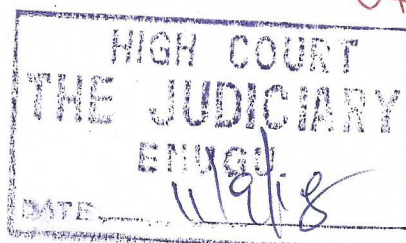 HIGH COURT
THE JUDICIARY
ENUGU
DATE 11/9/18